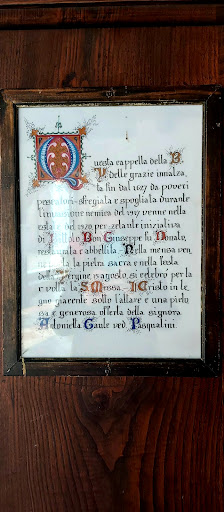 Questa cappella della B.
V. delle grazie innalza-
ta fin dal 1627 da poveri
pescatori-sfregiata e spogliata durante
l'invasione nemica del 1917 venne nella
estate del 1920 per zelante iniziativa
di Bon Giuseppe fu Donato,
restaurata e abbellita. Nella mensa ven
ne la pietra sacra e nella festa
della Vergine 15 agosto, si celebrò per la
1ª volta la S. Messa. - Il Cristo in le-
gno giacente sotto l'altare è una pieto
sa e generosa offerta della signora
Antonietta ved. Pasqualini.